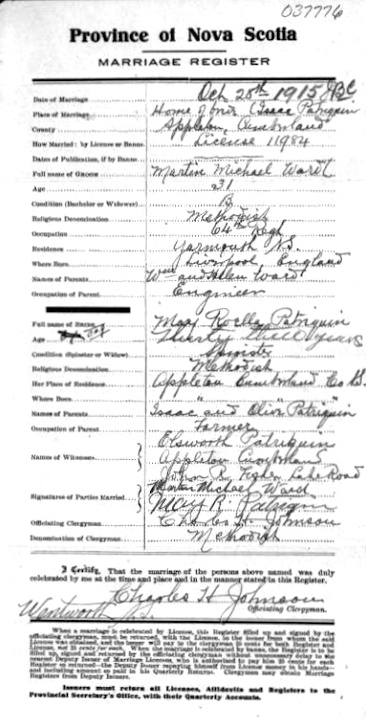 037776
Province of Nova Scotia
MARRIAGE REGISTER
Date of Marriage Oct 28th 1915
Place of Marriage Home of Mr Isaac Patriquin
County Appleton, Cumberland
How Married: by License or Banns License 11984
Dates of Publication, if by Banns
Full name of GROOM Martin Michael Ward
Age 31
Condition (Bachelor or Widower) B
Religious Denomination Methodist
Occupation 64th Regt
Residence Yarmouth N.S.
Where Born Liverpool, England
Names of Parents Wm and Helen Ward
Occupation of Parent Engineer
Full name of Patriquin
Age Thirty three years
Condition (Spinster or Widow) Spinster
Religious Denomination Methodist
Her Place of Residence Appleton Cumberland Co N.S.
Where Born " " "
Names of Parents Isaac and Patriquin
Occupation of Parent Farmer
Names of Witnesses Elsworth Patriquin
Appleton Cumberland
John R. Fisher Lake Road
Signatures of Parties Married Martin Michael Ward
Mary R. Patriquin
Officiating Clergyman Charles H. Johnson
Denomination of Clergyman Methodist
I Certify, That the marriage of the persons above named was duly
celebrated by me at the time and place and in the manner stated in this Register.
Charles H Johnson
Officiating Clergyman.
Wentworth N.S.
When a marriage is celebrated by License, this Register filled up and signed by the
officiating clergyman, must be returned, with the License, to the issuer from whom the said
License was obtained, and the issuer will pay to the clergyman 25 cents for both Register and
License, not 25 cents for each. When a marriage is celebrated by banns, the Register is to be
filled up, signed and returned by the officiating clergyman without unnecessary delay to the
nearest Deputy Issuer of Marriage Licenses, who is authorized to pay him 25 cents for each
Register so returned—the Deputy Issuer repaying himself from License money in his hands—
and including amount so paid in his Quarterly Returns. Clergymen may obtain Marriage
Registers from Deputy Issuers.
Issuers must return all Licenses, Affidavits and Registers to the
Provincial Secretary's Office, with their Quarterly Accounts.